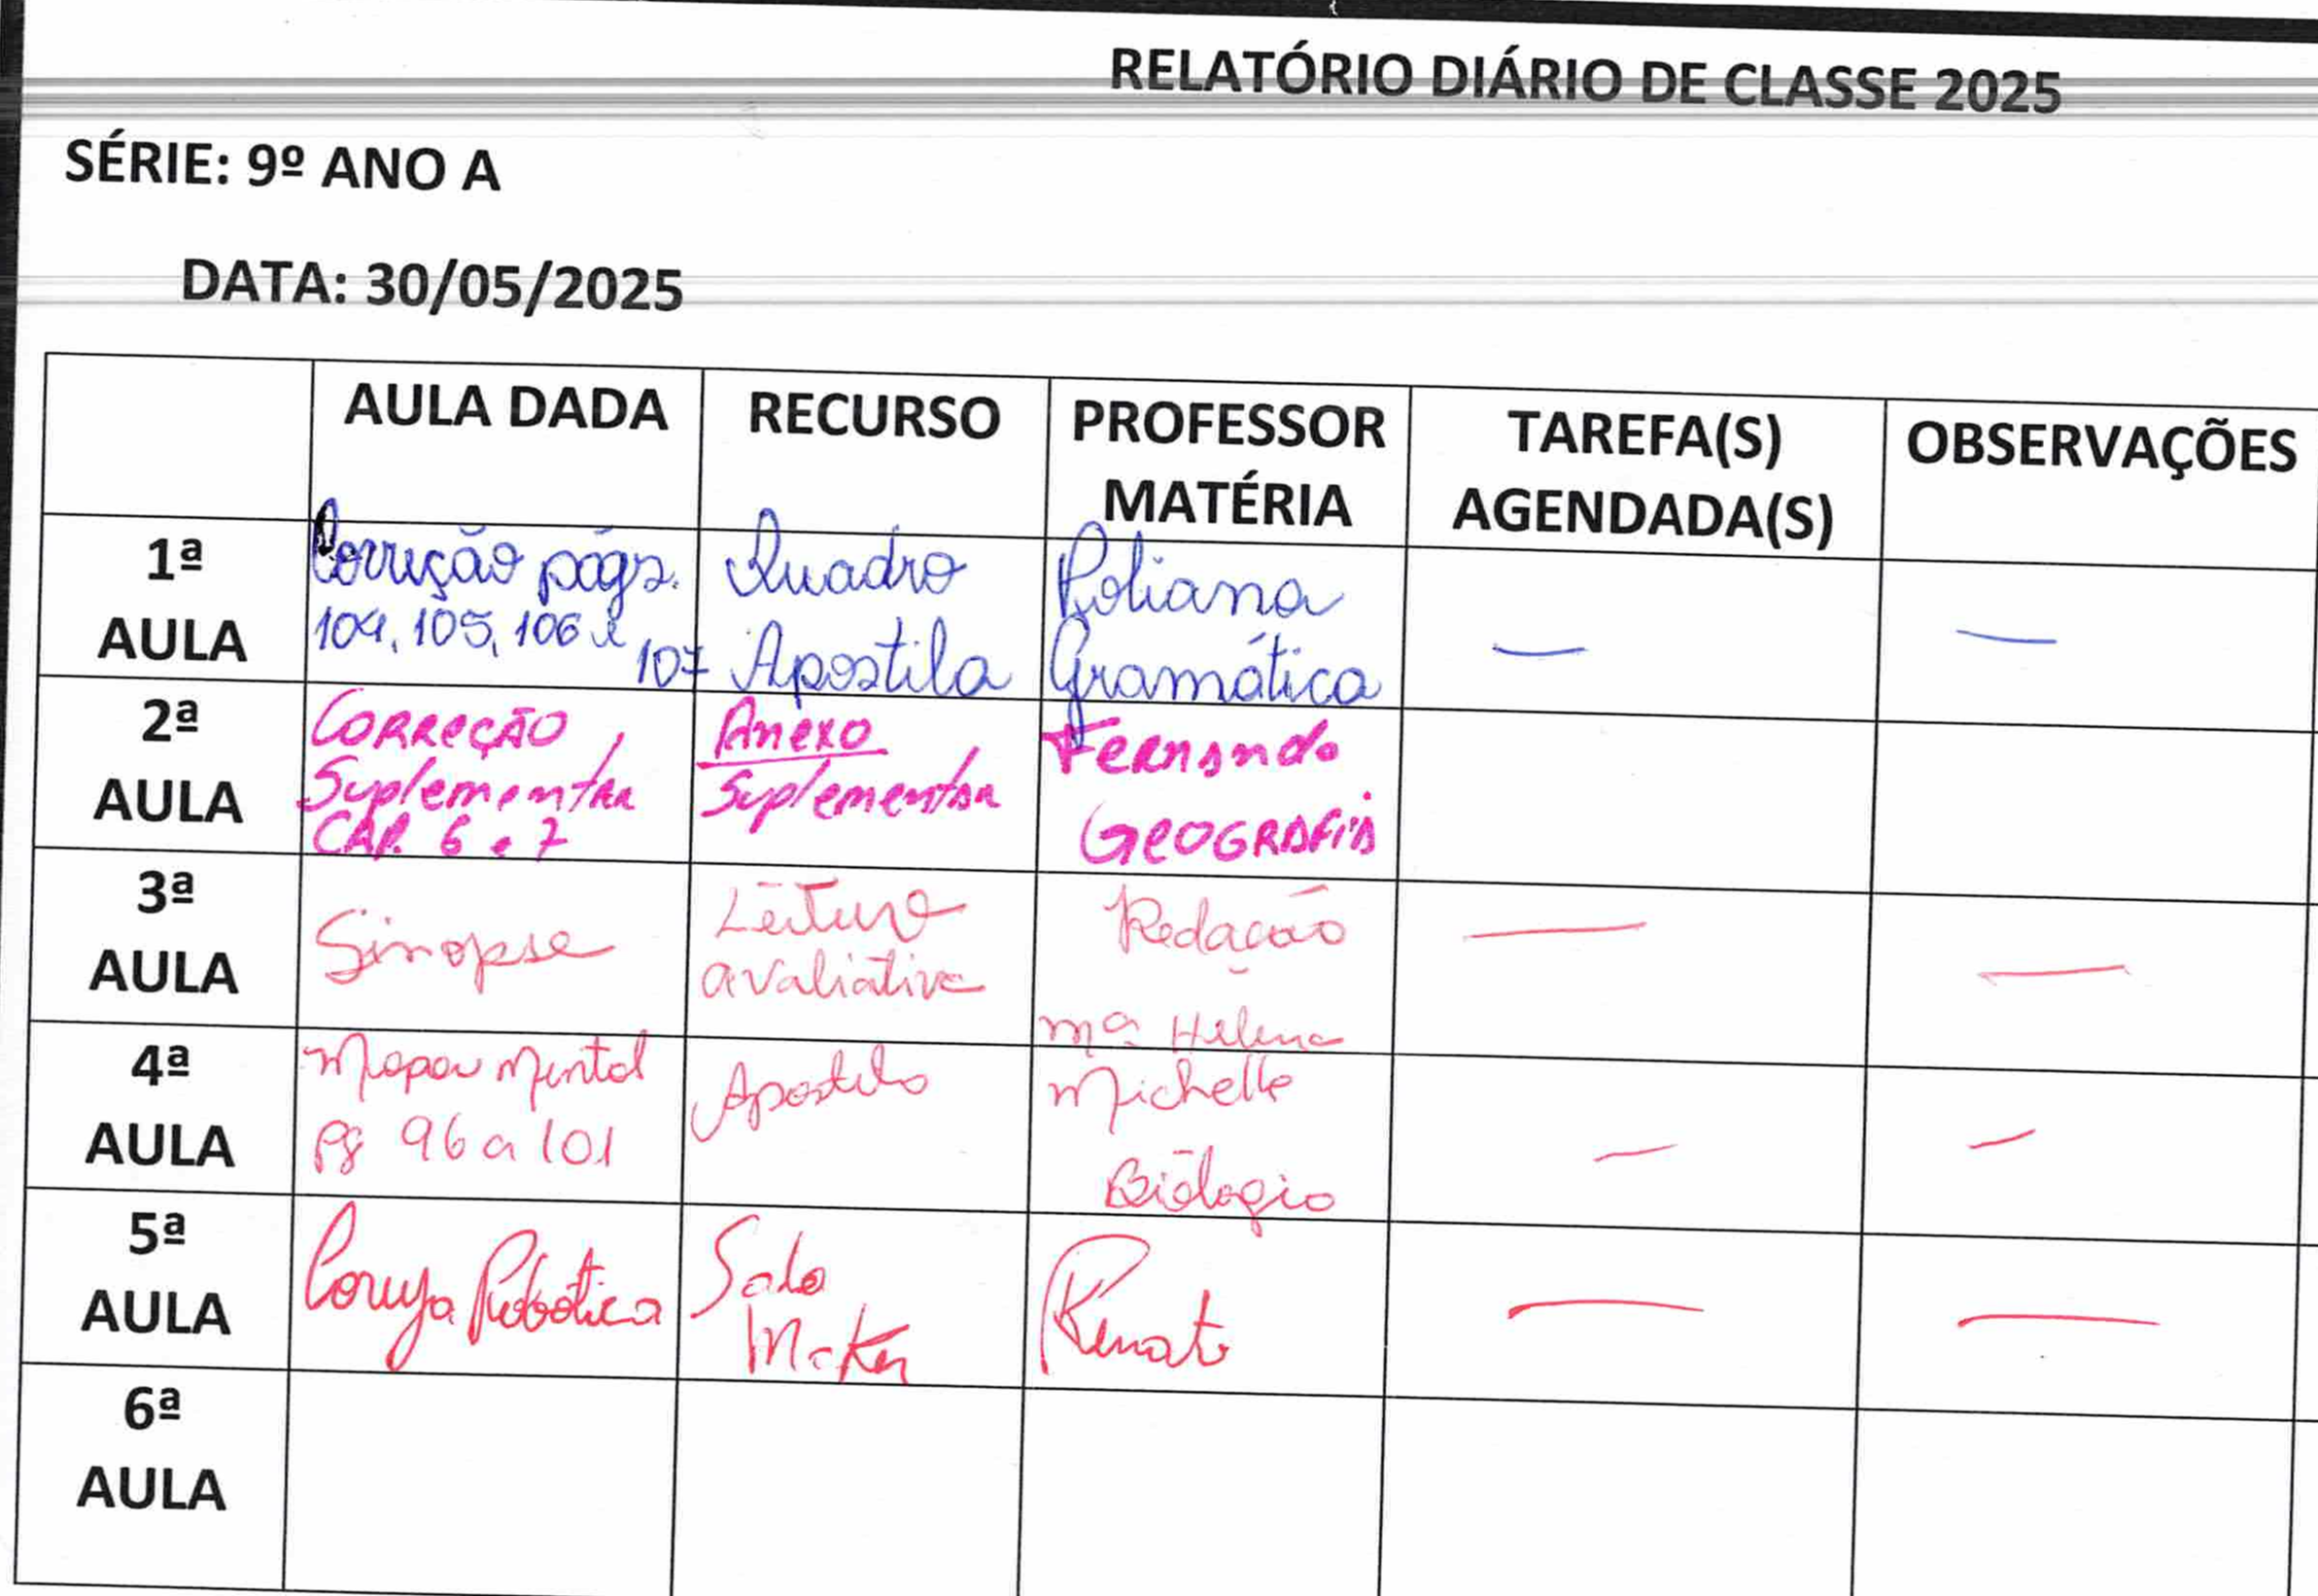 RELATÓRIO DIÁRIO DE CLASSE 2025
SÉRIE: 9º ANO A
DATA: 30/05/2025
AULA DADA RECURSO PROFESSOR MATÉRIA TAREFA(S) AGENDADA(S) OBSERVAÇÕES
1ª AULA
Correção págs.
104, 105, 106 e 107
Quadro
Apostila
Poliana
Gramática
—
—
2ª AULA
CORREÇÃO
Suplementar
CAP. 6 e 7
Anexo
Suplementar
Fernando
GEOGRAFIA
3ª AULA
Sinopse
Leitura
avaliativa
Redação
Mª Helena
—
—
4ª AULA
Mapa Mental
pg 96 a 101
Apostila
Michelle
Biologia
—
—
5ª AULA
Coruja Robótica
Sala
Maker
Renato
—
—
6ª AULA